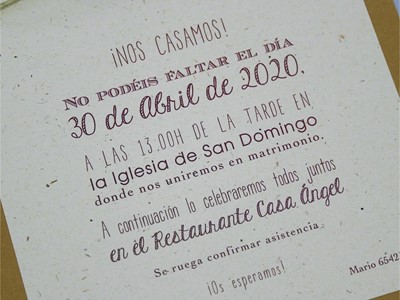 ¡NOS CASAMOS!
NO PODÉIS FALTAR EL DÍA
30 de Abril de 2020,
A LAS 13.00H DE LA TARDE EN
la Iglesia de San Domingo
donde nos uniremos en matrimonio.
A continuación lo celebraremos todos juntos
en el Restaurante Casa Ángel
Se ruega confirmar asistencia
¡Os esperamos!
Mario 6542